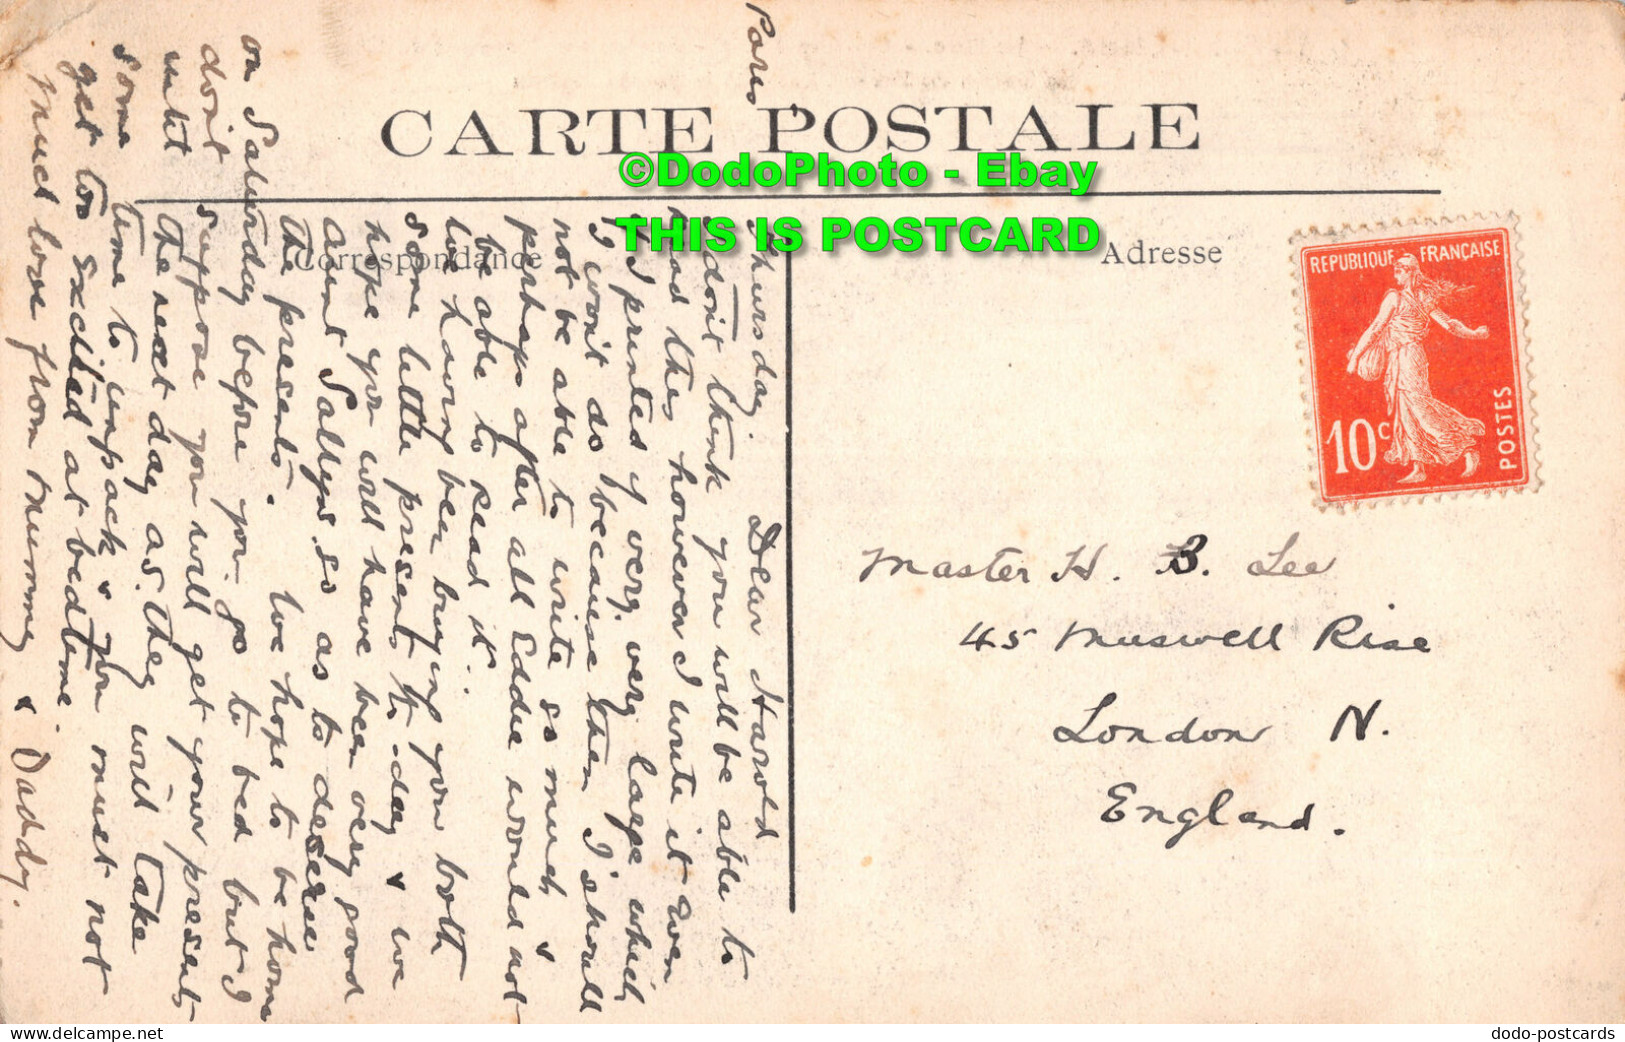 CARTE POSTALE
©DodoPhoto - Ebay
THIS IS POSTCARD
Correspondance
Adresse
REPUBLIQUE FRANÇAISE
10c
POSTES
Paris
Thursday. Dear Harold
I don't think you will be able to
read this, however I write it even
if I printed y very, very large which
I won't do because then I should
not be able to write so much &
perhaps after all Eddie would not
be able to read it.
We have been buying you both
some little presents to-day & we
hope you will have been very good
at Aunt Sallys so as to deserve
the presents. We hope to be home
on Saturday before you go to bed but I
don't suppose you will get your presents
until the next day as they will take
some time to unpack & you must not
get too excited at bedtime.
Much love from Mummy & Daddy.
Master H. B. Lee
45 Muswell Rise
London N.
England.
dodo-postcards
www.delcampe.net